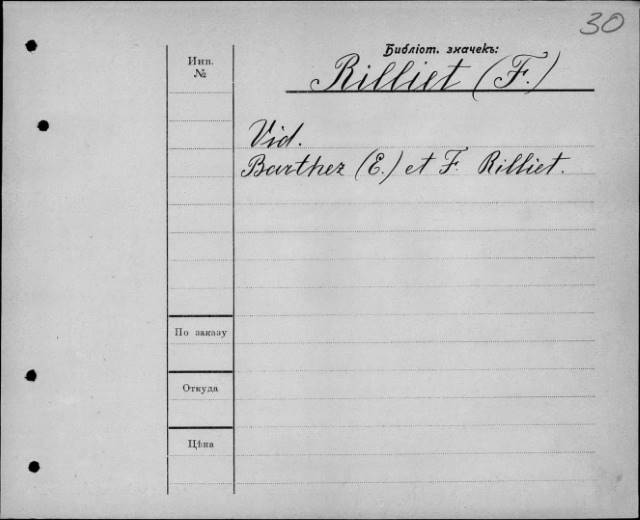 30
Библіот. значекъ:
Инв.
№
Rilliet (F.)
Vid.
Barthez (E.) et F. Rilliet.
По заказу
Откуда
Цѣна